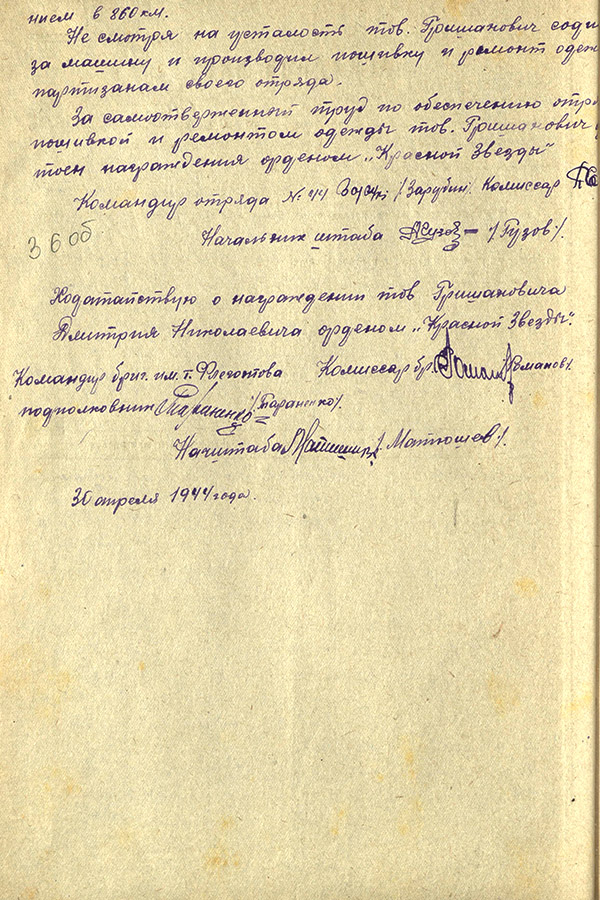 нием в 860 км.
Не смотря на усталость тов. Гришанович сади
за машину и производил пошивку и ремонт одеж
партизанам своего отряда.
За самоотверженный труд по обеспечению отря
пошивкой и ремонтом одежды тов. Гришанович
тоен награждения орденом „Красной Звезды"
Командир отряда № 44 /Зарубин/. Комиссар
3 6 об
Начальник штаба /Гузов/.
Ходатайствую о награждении тов Гришановича
Дмитрия Николаевича орденом „Красной Звезды".
Командир бриг. им. т. Флегонтова Комиссар бр. /Романов/.
подполковник /Тараненко/.
Начштаба /Матюшев/.
30 апреля 1944 года.